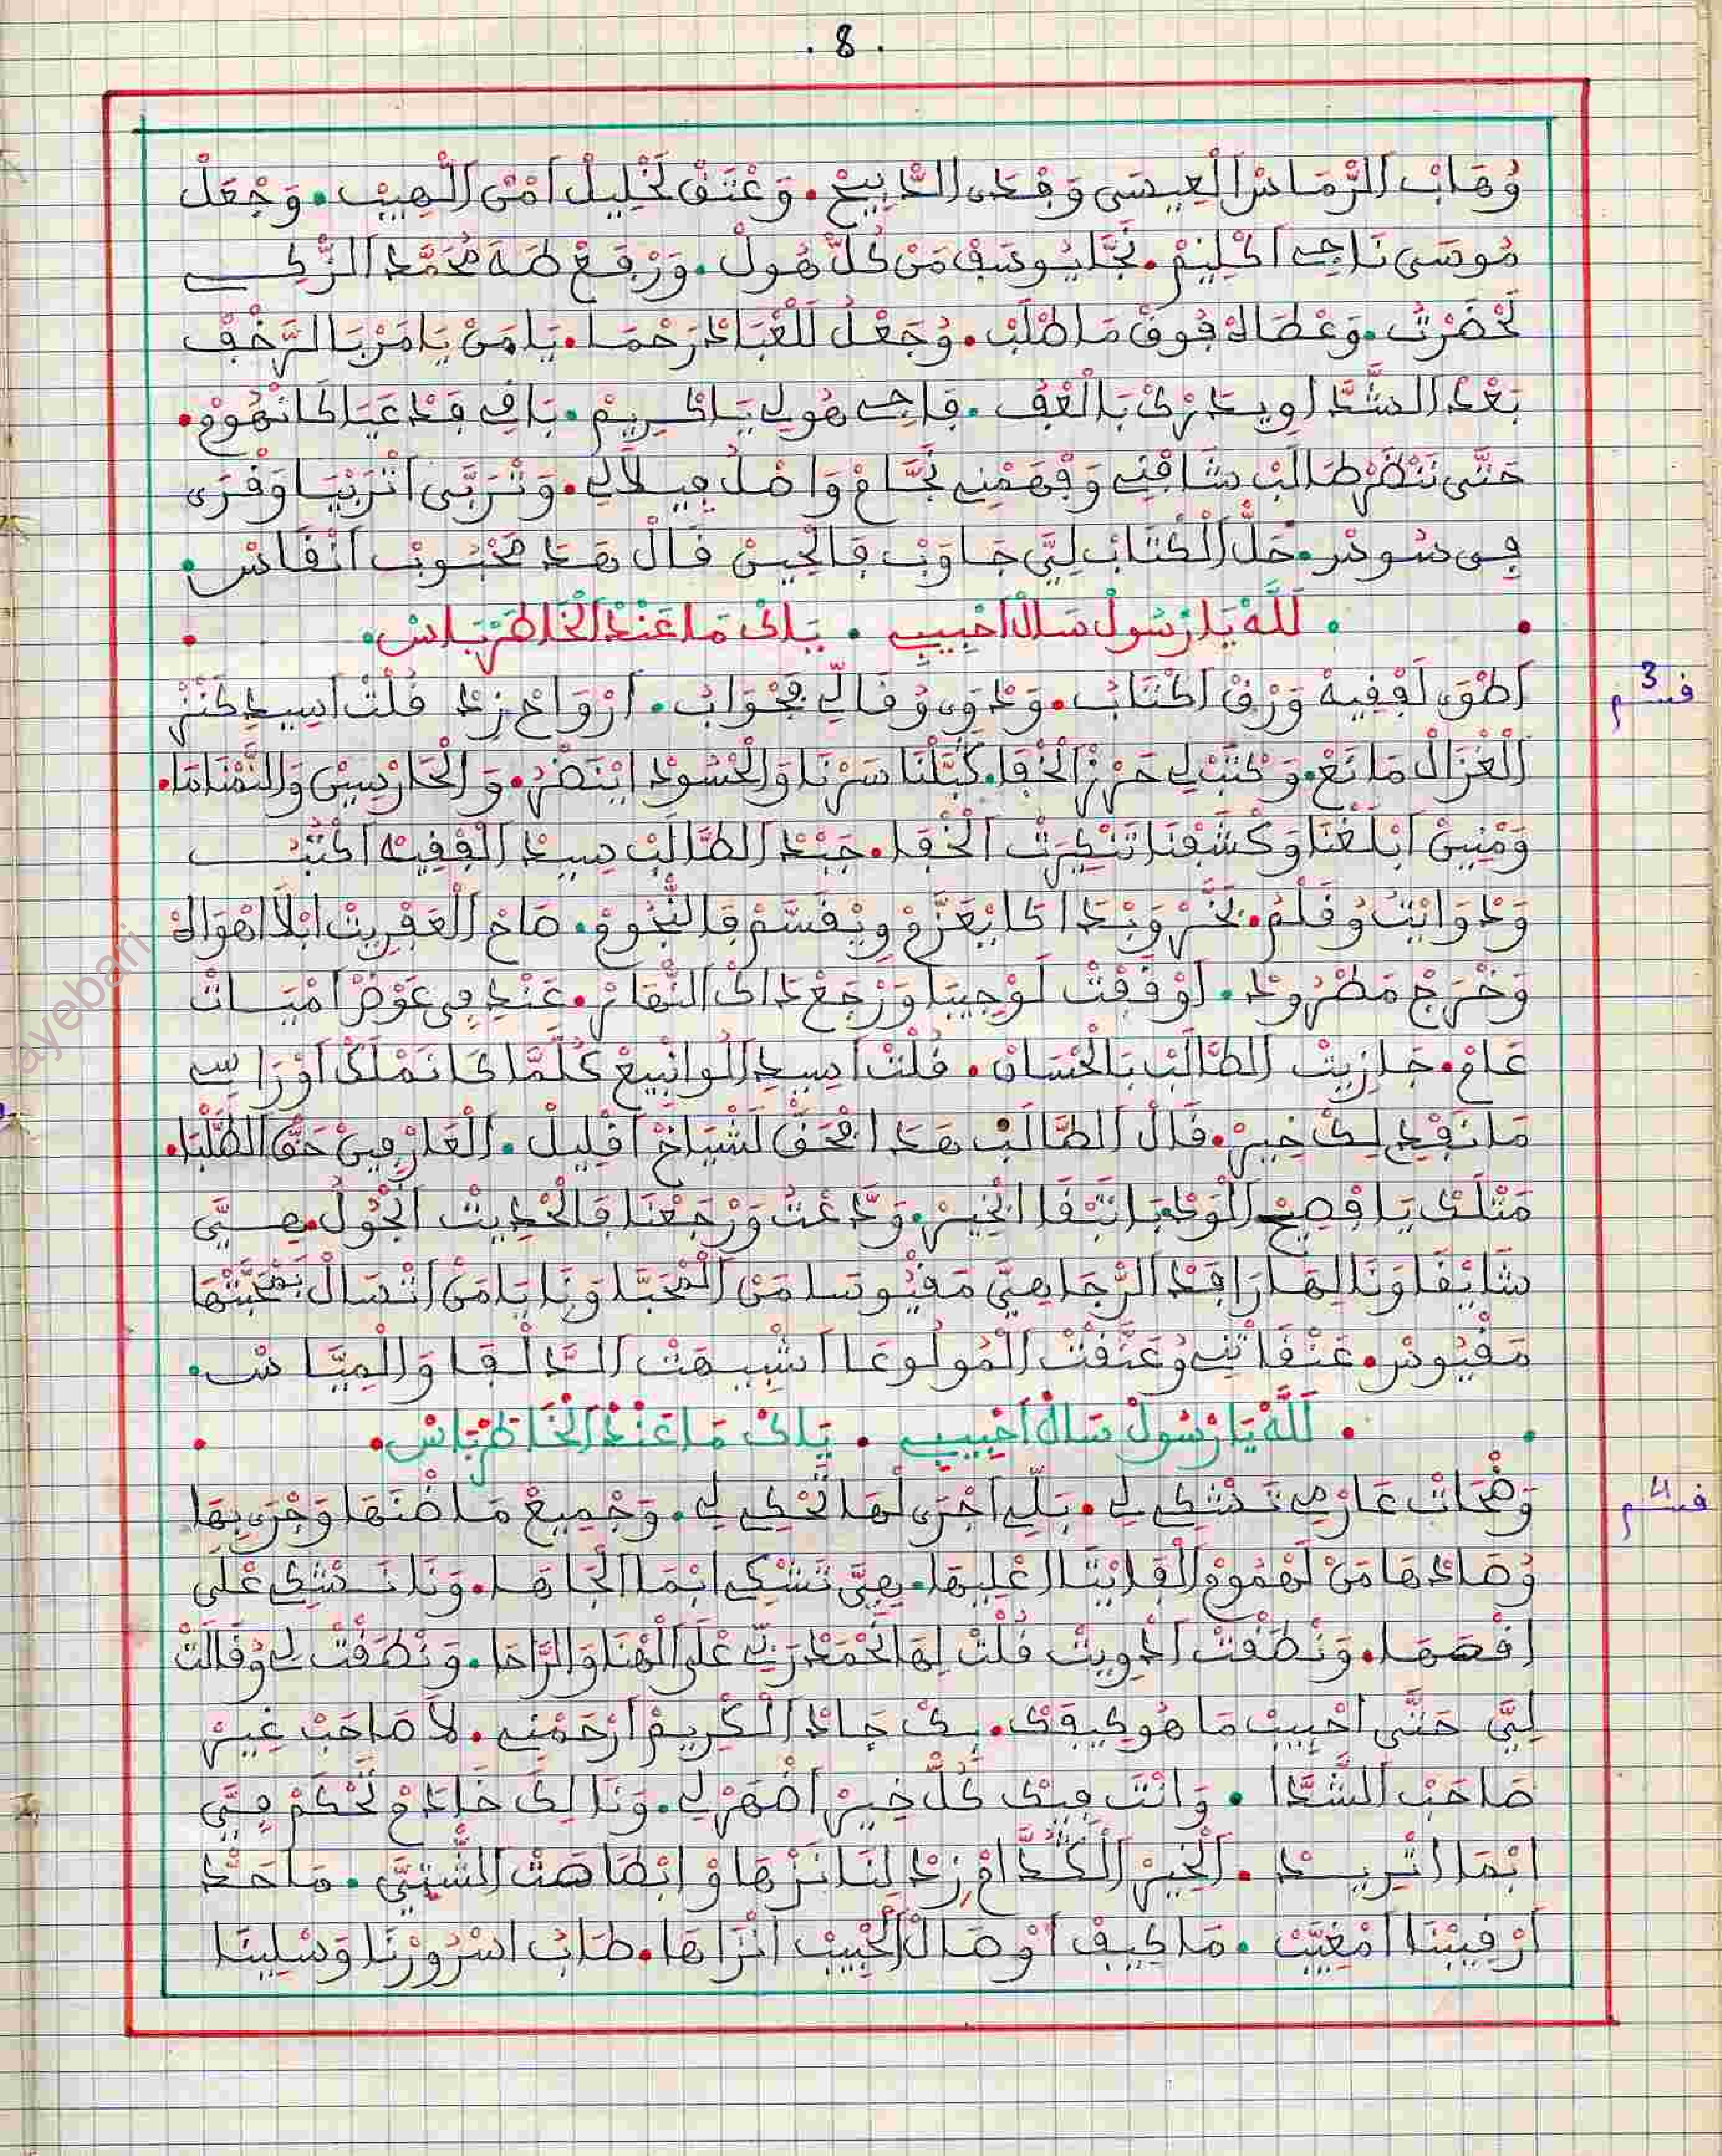 . 8 .
وُهَابْ الرَّمَاسْ الْعِيسَى وَفْدَى الذَّبِيحْ . وَعْتَقْ لَخْلِيلْ امْنْ اللّْهِيبْ . وَجْعَلْ
مُوسَى نَاجِي اكْلِيمْ . نَجَّا يُوسَفْ مَنْ كُلّْ هُولْ . وَرْفَعْ طَهَ مُحَمَّدْ الزّْكِي
لَحْضَرْتُ . وَعْطَاهْ فُوقْ مَا طْلَبْ . وُجَعْلُ لَلْعْبَادْ رَحْمَا . يَا مَنْ يَامَرْ بَالرَّخْفْ
بَعْدْ الشَّدَّا وِيدَرْكْ بَالْعْفُ . فَاجِي هُولِي يَا كْرِيمْ . بَافِي فَدْعَيَا كَانْهُومْ .
حَتَّى نَنْظَرْ طَالَبْ شَافْنِي وَفْهَمْنِي نَجَّامْ وَاصْلُ فِيلَالِي . وَتْرَبَّى اتْرَبْيَا وَقْرَى
فِي سُوسْ . حَلّْ الْكْتَابْ لِيَّ جَاوَبْ فَالْحِينْ قَالْ هَدَ مَحْبُوبْ انْفَاسْ .
. لَلَّهْ يَا رَسُولْ سَالْ احْبِيبِي . يَاكْ مَا عَنْدْ الْخَاطَرْ بَاسْ .
قسم 3
اطْوَى لَفْقِيهْ وَرْقْ اكْتَابُ . وَدْوَى وُقَالِّي فَجْوَابُ . ارْوَاحْ زِدْ قُلْتْ اسِيدِ كَنْزْ
الْغْزَالْ مَانَعْ . وَكْتَبْ لِي حَرْزْ الْخْفَا . كَبَّلْنَا سَرْنَا وَالْحْسُودْ ايْنَضْرُ . وَالْحَارْسِينْ وَالنَّمَّامَا .
وَمْنِينْ ابْلَغْنَا وَكْشَفْنَا تَنْكِيرْتْ الْخْفَا . جْبَدْ الطَّالَبْ سِيدْ الْفْقِيهْ اكْتَبُ
وَدْوَايْتُ وُقَلْمُ . بَخَّرْ وَبْدَا كَايْعَزَّمْ وِيْقَسَّمْ فَالنّْجُومْ . صَاحْ الْعَفْرِيتْ ابْلَا اهْوَاهْ
وَخْرَجْ مَطْرُودْ . لَوْقَفْتْ لَوْجِيبَا وَرْجَعْ دَاكْ النّْهَارْ . عَنْدِي فِي عَوْضْ امْيَاتْ
عَامْ . جَازِيتْ الطَّالَبْ بَالْحْسَانْ . قُلْتْ اسِيدِ الُو انْبِيعْ كُلّْمَا كَانَمْلَكْ اوْرَاسِي
مَا نَفْدِي لِكْ خِيرْ . قَالْ الطَّالَبْ هَدَا فْحَقّْ لَشْيَاخْ اقْلِيلْ . الْعَارْفِينْ حَقّْ الطَّلْبَا .
مَثْلَكْ يَا فْصِيحْ الْوَجْبَا يَتْبْقَا الْخِيرْ . وَدَّعْتُ وَرْجَعْنَا فَالْحْدِيثْ الْجُولُ . هِيَّ
شَايْقَا وَنَا لِيهَا رَاقَدْ الرّْجَا هِيَّ مَقْيُوسَا مَنْ الْمْحَبَّا وَنَا يَا مَنْ اتْسَالْ بَمْحَبَّتْهَا
مَقْيُوسْ . عَنْقَاتْنِي وُعَنَّقْتْ الْمُولُوعَا اشْبِيهَتْ الدَّالْقَا وَالْمِيَّاسْ .
. لَلَّهْ يَا رَسُولْ سَالْ احْبِيبِي . يَاكْ مَا عَنْدْ الْخَاطَرْ بَاسْ .
قسم 4
وَضْحَاتْ عَارْمِي تَدْشْكِي لِي . بَلِّي اجْرَى لْهَا تَحْكِي لِي . وَجْمِيعْ مَا ضْنَهَا وَجْرَى بِيهَا
وُصَادْهَا مَنْ لَهْمُومْ الْفَايْتَا اعْلِيهَا . هِيَّ تَشْكِي ابْمَا الْجَاهَا . وَنَا نَدْشْكِي عْلَى
افْصَهَا . وَنْطَقْتْ ادْوِيتْ قُلْتْ لِهَا نَحْمَدْ رَبِّي عْلَى الْهْنَا وَالرَّاحَا . وَنْطَقْتْ لِي وُقَالَتْ
لِيَّ حَتَّى احْبِيبْ مَا هُو كِيفَكْ . بِكْ جَادْ الْكْرِيمْ ارْحَمْنِي . لَا صَاحَبْ غِيرْ
صَاحَبْ الشَّدَّا . وَانْتَ فِيكْ كُلّْ خِيرْ اضْهَرْ لِي . وَنَا لِيكْ خَادَمْ تَحْكَمْ فِيَّ
ابْمَا اتْرِيدْ . الْخِيرْ الْكُدَّامْ زِدْ لِنَا نَزْهَاوْ ابْطَاهَتْ الشّْتِيَّ . مَا حَدْ
ارْقِيبْنَا امْغَيَّبْ . مَا كِيفْ اوْصَالْ الْحْبِيبْ انْزَاهَا . طَابْ اسْرُورْنَا وَسْلِينَا